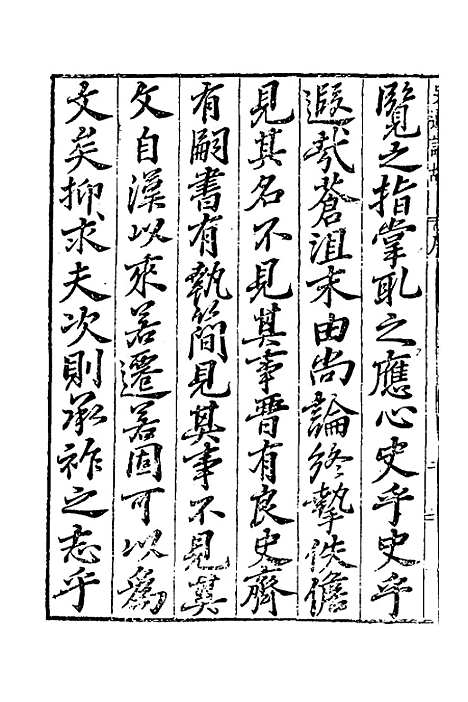 覽之指掌取之應心史乎史乎
遐哉蒼沮末由尚論終摯佚儋
見其名不見其事晉有良史齊
有嗣書有執簡見其事不見其
文自漢以來若遷若固可以為
文矣抑求夫次則承祚之志乎